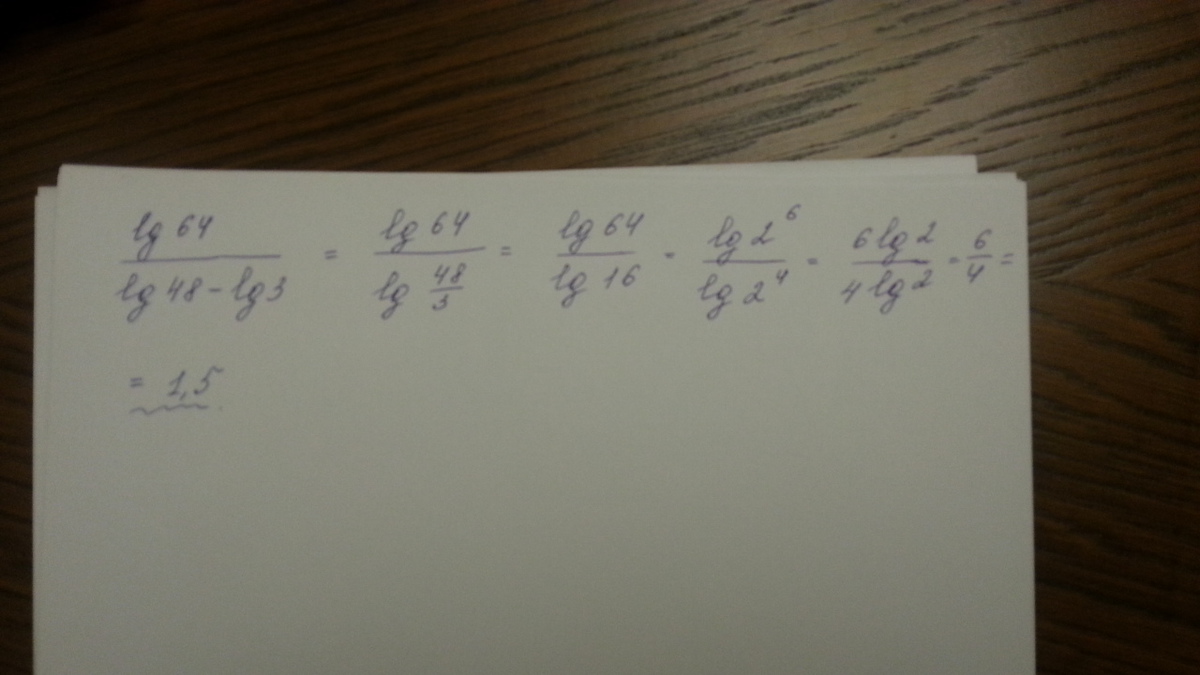 lg 64 / (lg 48 - lg 3) = lg 64 / lg 48/3 = lg 64 / lg 16 = lg 2^6 / lg 2^4 = 6 lg 2 / 4 lg 2 = 6/4 =
= 1,5